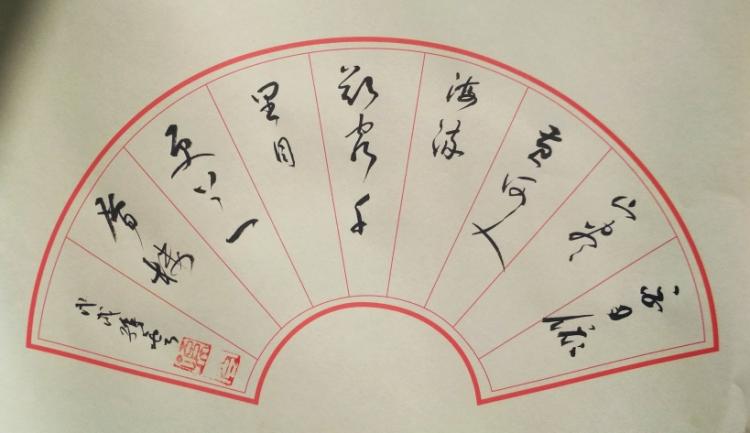 白日依
山尽
黄河入
海流
欲穷千
里目
更上一
層楼
戊戌